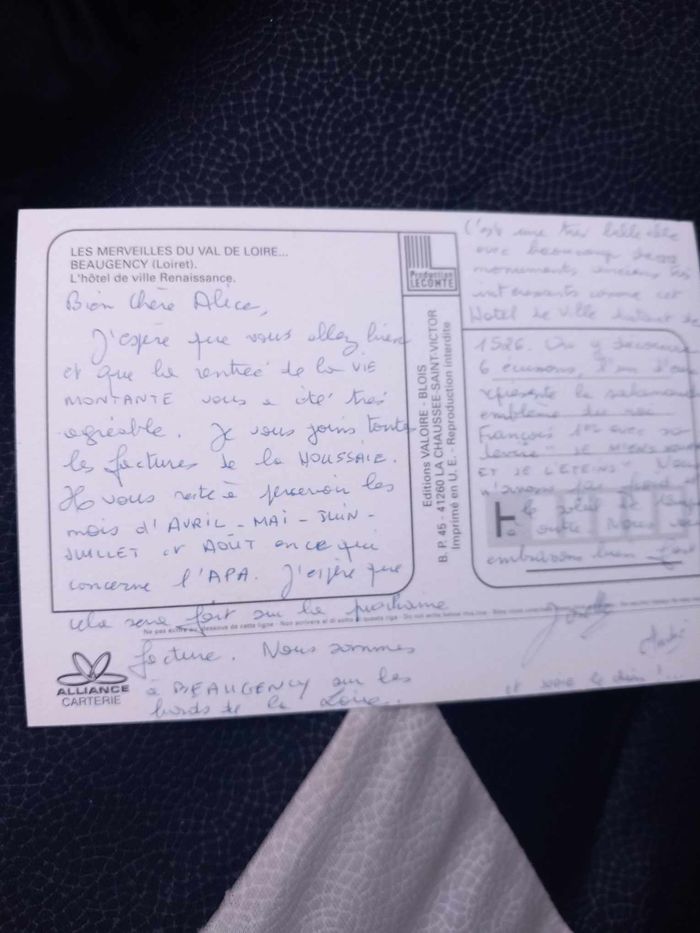 LES MERVEILLES DU VAL DE LOIRE...
BEAUGENCY (Loiret).
L'hôtel de ville Renaissance.
Bien chère Alice,
J'espère que vous allez bien
et que la rentrée de la VIE
MONTANTE vous a été très
agréable. Je vous joins toutes
les factures de la HOUSSAIE.
Il vous reste à percevoir les
mois d'AVRIL - MAI - JUIN -
JUILLET et AOÛT en ce qui
concerne l'APA. J'espère que
cela sera fait sur la prochaine
facture. Nous sommes
à BEAUGENCY sur les
bords de la Loire..
Ne pas écrire au-dessous de cette ligne
ALLIANCE
CARTERIE
Production
LECONTE
Editions VALOIRE - BLOIS
B. P. 45 - 41260 LA CHAUSSEE-SAINT-VICTOR
Imprimé en U. E. - Reproduction interdite
C'est une très belle ville
avec beaucoup de
monuments anciens très
intéressants comme cet
Hôtel de Ville datant de
1526. On y découvre
6 écussons, l'un d'eux
représente la salamandre
emblème du roi
François 1er avec sa
devise "JE
ET JE L'ETEINS"
le soleil
en outre Nous vous
embrassons bien fort
et